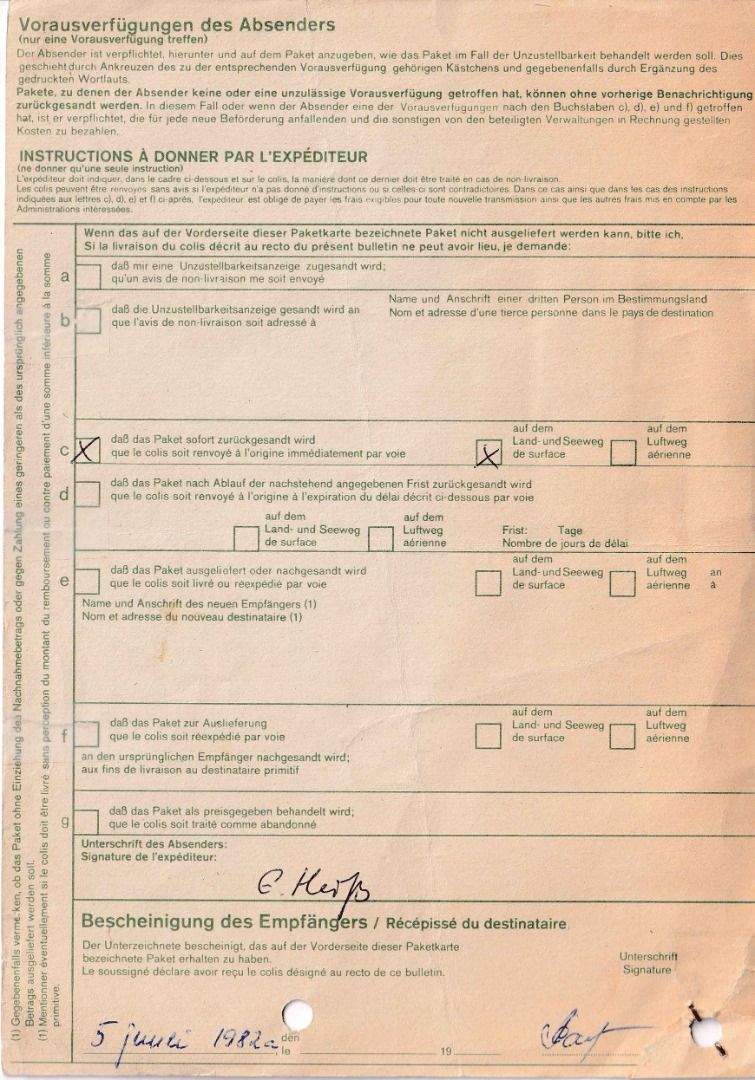 Vorausverfügungen des Absenders
(nur eine Vorausverfügung treffen)
Der Absender ist verpflichtet, hierunter und auf dem Paket anzugeben, wie das Paket im Fall der Unzustellbarkeit behandelt werden soll. Dies
geschieht durch Ankreuzen des zu der entsprechenden Vorausverfügung gehörigen Kästchens und gegebenenfalls durch Ergänzung des
gedruckten Wortlauts.
Pakete, zu denen der Absender keine oder eine unzulässige Vorausverfügung getroffen hat, können ohne vorherige Benachrichtigung
zurückgesandt werden. In diesem Fall oder wenn der Absender eine der Vorausverfügungen nach den Buchstaben c), d), e) und f) getroffen
hat, ist er verpflichtet, die für jede neue Beförderung anfallenden und die sonstigen von den beteiligten Verwaltungen in Rechnung gestellten
Kosten zu bezahlen.
INSTRUCTIONS À DONNER PAR L'EXPÉDITEUR
(ne donner qu'une seule instruction)
L'expéditeur doit indiquer, dans le cadre ci-dessous et sur le colis, la manière dont ce dernier doit être traité en cas de non-livraison.
Les colis peuvent être renvoyés sans avis si l'expéditeur n'a pas donné d'instructions ou si celles-ci sont contradictoires. Dans ce cas ainsi que dans les cas des instructions
indiquées aux lettres c), d), e) et f) ci-après, l'expéditeur est obligé de payer les frais exigibles pour toute nouvelle transmission ainsi que les autres frais mis en compte par les
Administrations intéressées.
Wenn das auf der Vorderseite dieser Paketkarte bezeichnete Paket nicht ausgeliefert werden kann, bitte ich,
Si la livraison du colis décrit au recto du présent bulletin ne peut avoir lieu, je demande:
a
daß mir eine Unzustellbarkeitsanzeige zugesandt wird;
qu'un avis de non-livraison me soit envoyé
b
daß die Unzustellbarkeitsanzeige gesandt wird an
que l'avis de non-livraison soit adressé à
Name und Anschrift einer dritten Person im Bestimmungsland
Nom et adresse d'une tierce personne dans le pays de destination
c
X
daß das Paket sofort zurückgesandt wird
que le colis soit renvoyé à l'origine immédiatement par voie
X
auf dem
Land- und Seeweg
de surface
auf dem
Luftweg
aérienne
d
daß das Paket nach Ablauf der nachstehend angegebenen Frist zurückgesandt wird
que le colis soit renvoyé à l'origine à l'expiration du délai décrit ci-dessous par voie
auf dem
Land- und Seeweg
de surface
auf dem
Luftweg
aérienne
Frist: Tage
Nombre de jours de délai
e
daß das Paket ausgeliefert oder nachgesandt wird
que le colis soit livré ou réexpédié par voie
auf dem
Land- und Seeweg
de surface
auf dem
Luftweg an
aérienne à
Name und Anschrift des neuen Empfängers (1)
Nom et adresse du nouveau destinataire (1)
f
daß das Paket zur Auslieferung
que le colis soit réexpédié par voie
auf dem
Land- und Seeweg
de surface
auf dem
Luftweg
aérienne
an den ursprünglichen Empfänger nachgesandt wird;
aux fins de livraison au destinataire primitif
g
daß das Paket als preisgegeben behandelt wird;
que le colis soit traité comme abandonné
Unterschrift des Absenders:
Signature de l'expéditeur:
Bescheinigung des Empfängers / Récépissé du destinataire
Der Unterzeichnete bescheinigt, das auf der Vorderseite dieser Paketkarte
bezeichnete Paket erhalten zu haben.
Le soussigné déclare avoir reçu le colis désigné au recto de ce bulletin.
Unterschrift
Signature
5 1982
den
le 19
(1) Gegebenenfalls vermerken, ob das Paket ohne Einziehung des Nachnahmebetrags oder gegen Zahlung eines geringeren als des ursprünglich angegebenen
Betrags ausgeliefert werden soll.
(1) Mentionner éventuellement si le colis doit être livré sans perception du montant du remboursement ou contre paiement d'une somme inférieure à la somme
primitive.